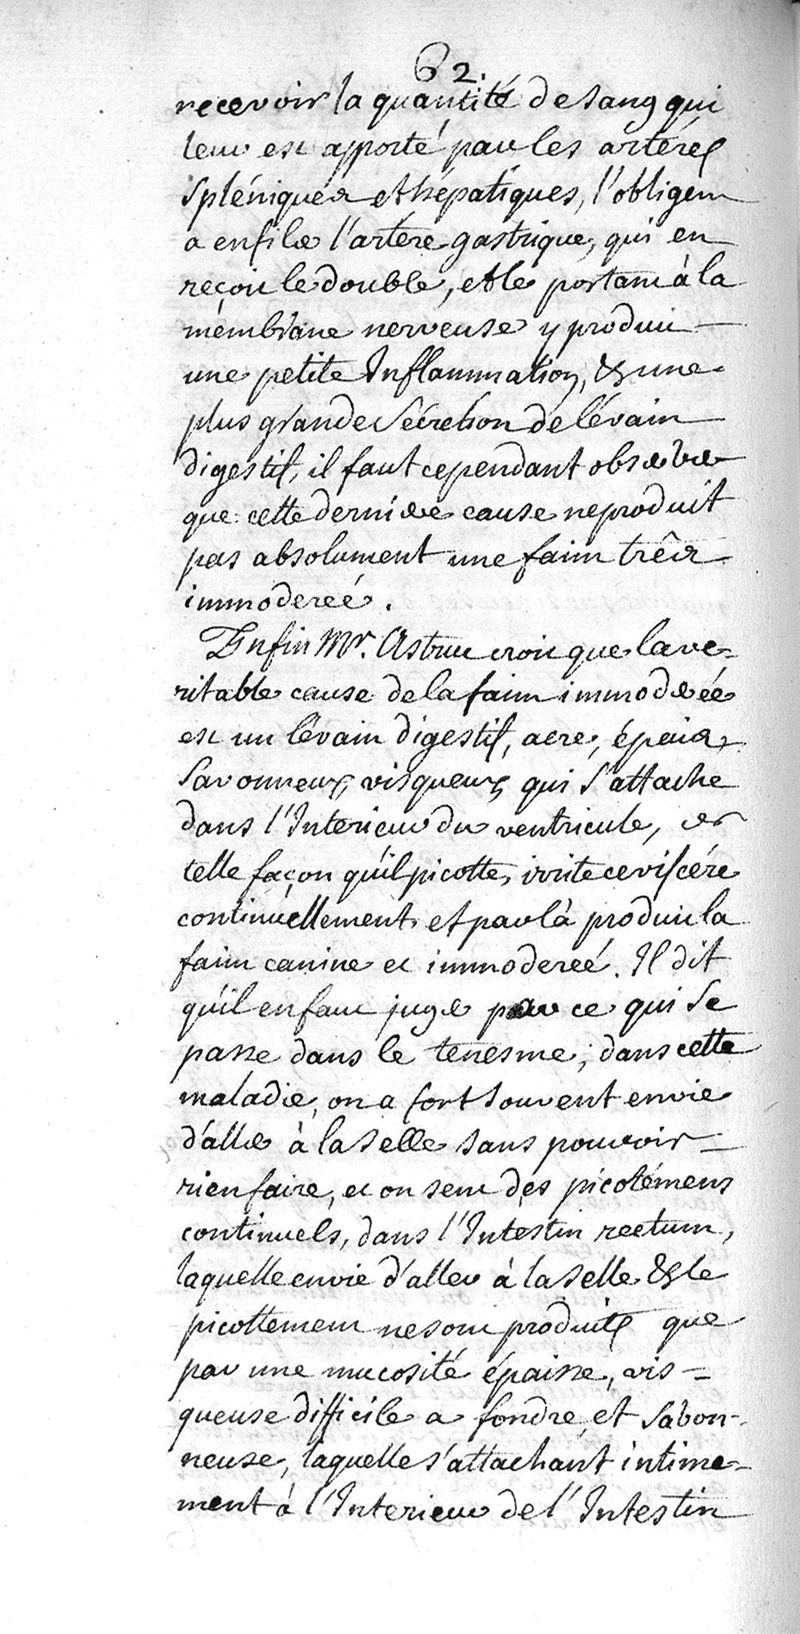 62.
recevoir la quantité de sang qui
leur est apporté par les artéres
spléniques et hépatiques, l'obligent
a enfiler l'artére gastrique, qui en
reçoit le double, et le portant à la
mémbrane nerveuse y produit
une petite Inflammation, & une
plus grande sécretion de lévain
digestif, il faut cependant observer
que cette derniere cause ne produit
pas absolument une faim trêes
immodereé.
Enfin Mr. Astruc croit que la ve-
ritable cause de la faim immodereé
est un lévain digestif, acre, épais,
savonneux, visqueux, qui s'attache
dans l'Interieur du ventricule, de
telle façon qu'il picotte, irrite ce viscére
continuellement, et par là produit la
faim canine et immodereé. Il dit
qu'il en faut juger par ce qui se
passe dans le tenesme; dans cette
maladie, on a fort souvent envie
d'aller à la selle sans pouvoir
rien faire, et on sent des picotémens
continuels, dans l'Intestin rectum,
laquelle envie d'aller à la selle & le
picottement ne sont produits que
par une mucosité épaisse, vis-
queuse difficile a fondre, et sabon-
neuse, laquelle s'attachant intime-
ment à l'Interieur de l'Intestin